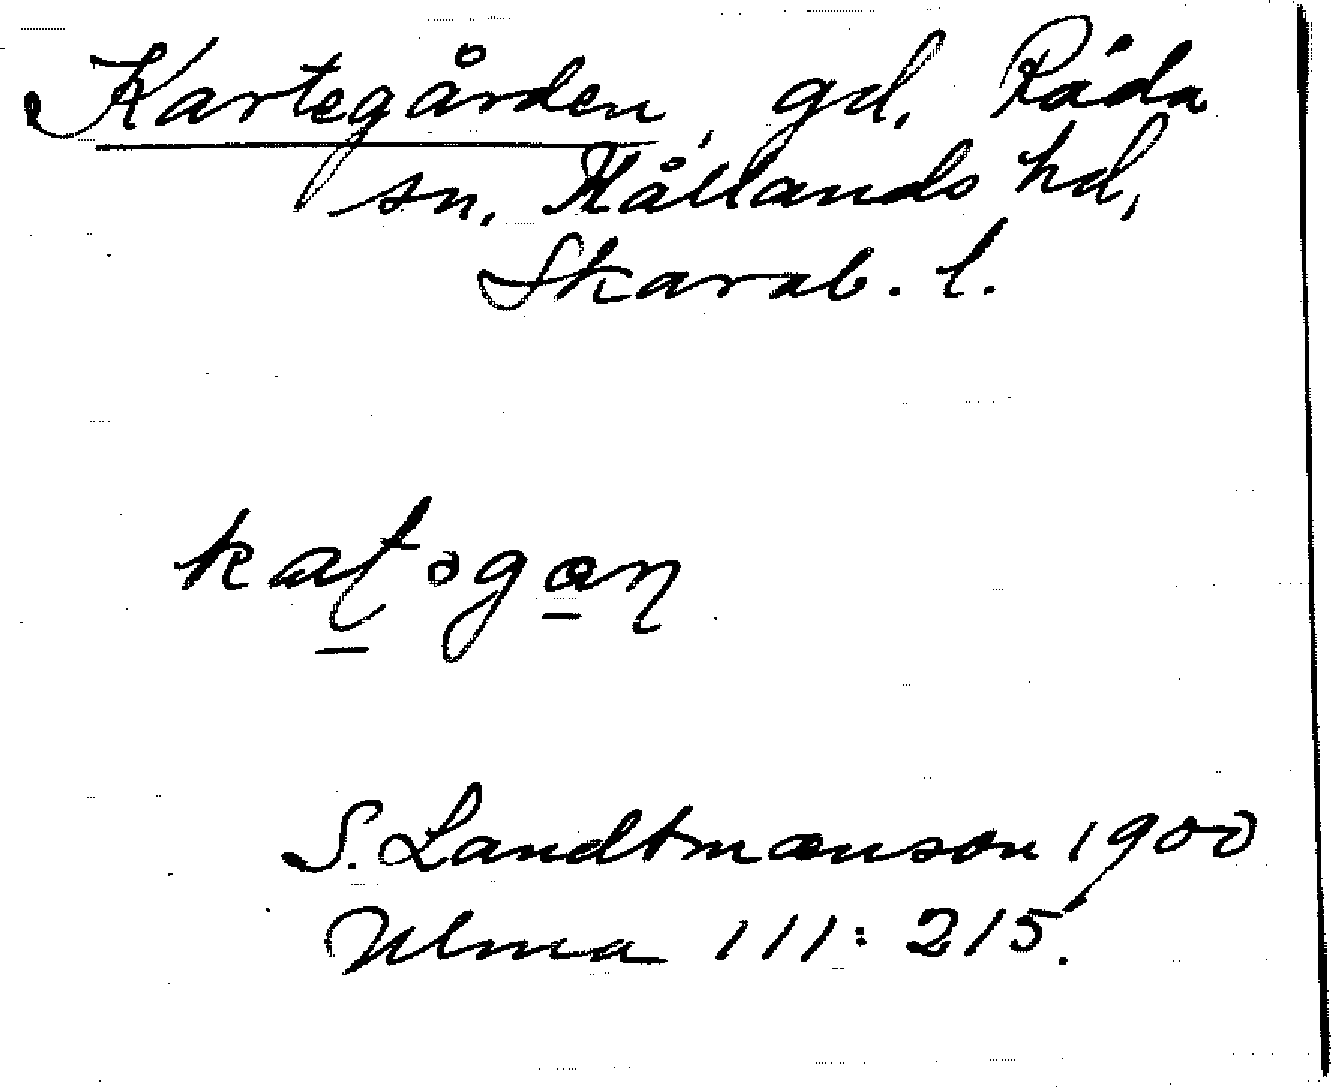 Kartegården, gd. Råda
sn, Kållands hd,
Skarab. l.
katəgan
S. Landtmanson 1900
Ulma 111: 215.